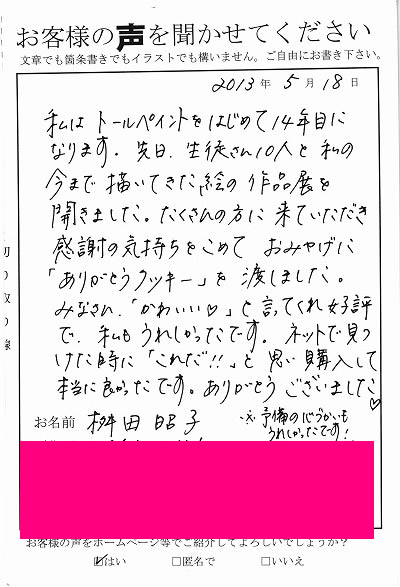 お客様の声を聞かせてください
文章でも箇条書きでもイラストでも構いません。ご自由にお書き下さい。
2013年 5月 18日
私は トールペイントをはじめて14年目に
なります。先日、生徒さん10人と私の
今まで描いてきた絵の作品展を
開きました。たくさんの方に来ていただき
感謝の気持ちをこめて おみやげに
「ありがとうクッキー」を 渡しました。
みなさん、「かわいい♡」と言ってくれ好評
で、私も うれしかったです。ネットで見つ
けた時に「これだ!!」と思い購入して
本当に良かったです。ありがとう ございました♡
お名前 桝田 昭子
※ 予備の心づかいも
うれしかったです!
切り取り線
お客様の声をホームページ等でご紹介してよろしいでしょうか?
☑はい □匿名で □いいえ